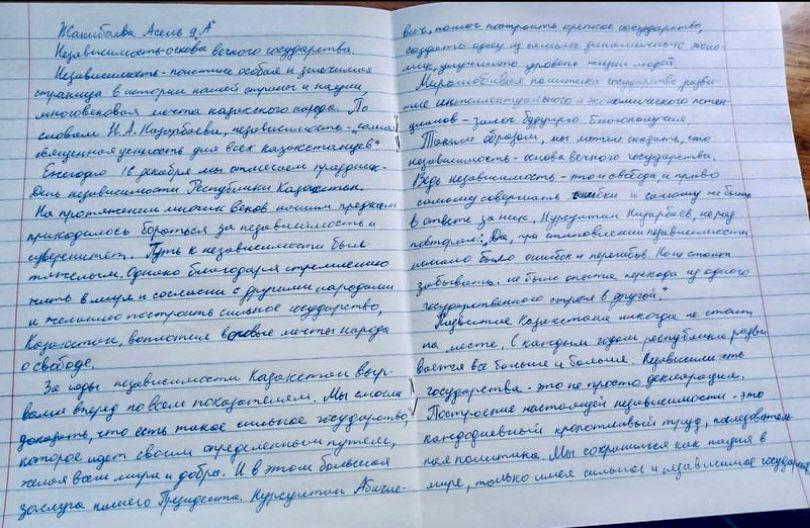 Жакибаева Асель 9 "А"
Независимость-основа вечного государства.
Независимость - поистине особая и значимая
страница в истории нашей страны и нации,
многовековая мечта казахского народа. По
словам Н.А. Назарбаева, независимость - самая
священная ценность для всех казахстанцев"
Ежегодно 16 декабря мы отмечаем праздник-
День независимости Республики Казахстан.
На протяжении многих веков нашим предкам
приходилось бороться за независимость и
суверенитет. Путь к независимости был
тяжелым. Однако благодаря стремлению
жить в мире и согласии с другими народами
и желанию построить сильное государство,
Казахстан, воплотил вековые мечты народа
о свободе.
За годы независимости Казахстан выр-
вался вперед по всем показателям. Мы смогли
доказать, что есть такое сильное государство,
которое идет своим определенным путем,
желая всем мира и добра. И в этом большая
заслуга нашего Президента. Нурсултан Абише-
вич, помог построить крепкое государство,
создать одну из самых динамичных эконо-
мик, улучшить уровень жизни людей.
Миролюбивая политика государства разви-
тие интеллектуального и экономического потен-
циалов - залог будущего благополучия.
Таким образом, мы можем сказать, что
независимость - основа вечного государства.
Ведь независимость - это и свобода и право
самому совершать ошибки и самому же быть
в ответе за них. Нурсултан Назарбаев, не раз
повторял: "Да, при становлении независимости
немало было ошибок и перегибов. Но не стоит
забывать, не было опыта перехода из одного
государственного строя в другой."
Развитие Казахстана никогда не стоит
на месте. С каждым годом республика разви-
вается все больше и больше. Независимость
государства - это не просто декларация.
Построение настоящей независимости - это
каждодневный кропотливый труд, последователь-
ная политика. Мы сохранимся как нация в
мире, только имея сильное и независимое государство